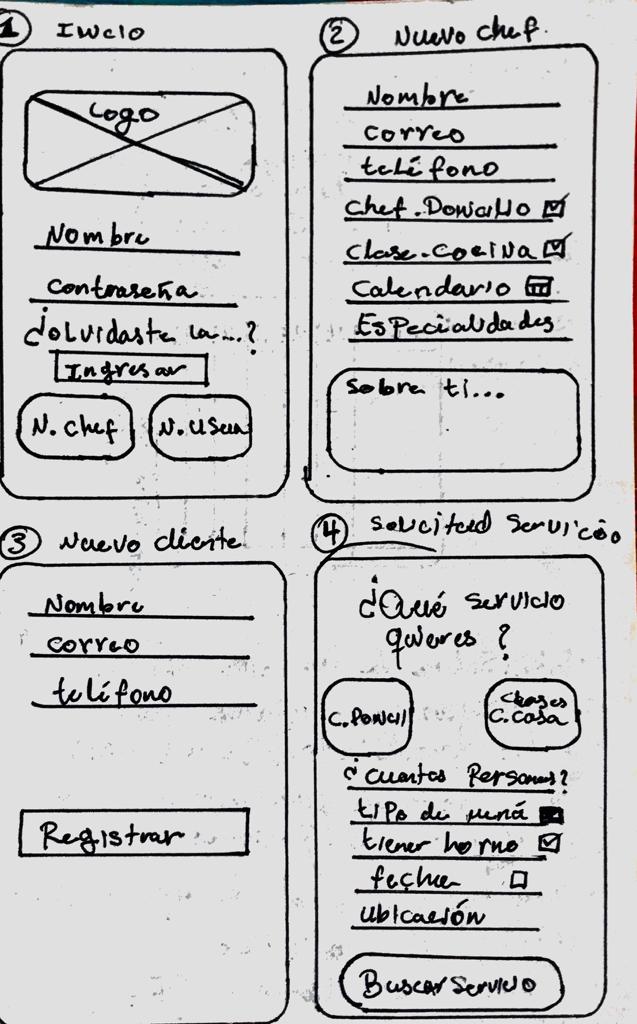 1 Inicio
Logo
Nombre
Contraseña
¿olvidaste la...?
Ingresar
N. Chef
N. User
2 Nuevo Chef.
Nombre
correo
teléfono
Chef.Domicilio
Clase.Cocina
Calendario
Especialidades
Sobre ti...
3 Nuevo cliente
Nombre
correo
teléfono
Registrar
4 Solicitud Servicio
¿Qué servicio
quieres?
Clases
C. Casa
¿Cuantas Personas?
tipo de menú
tienes horno
fecha
ubicación
Buscar Servicio